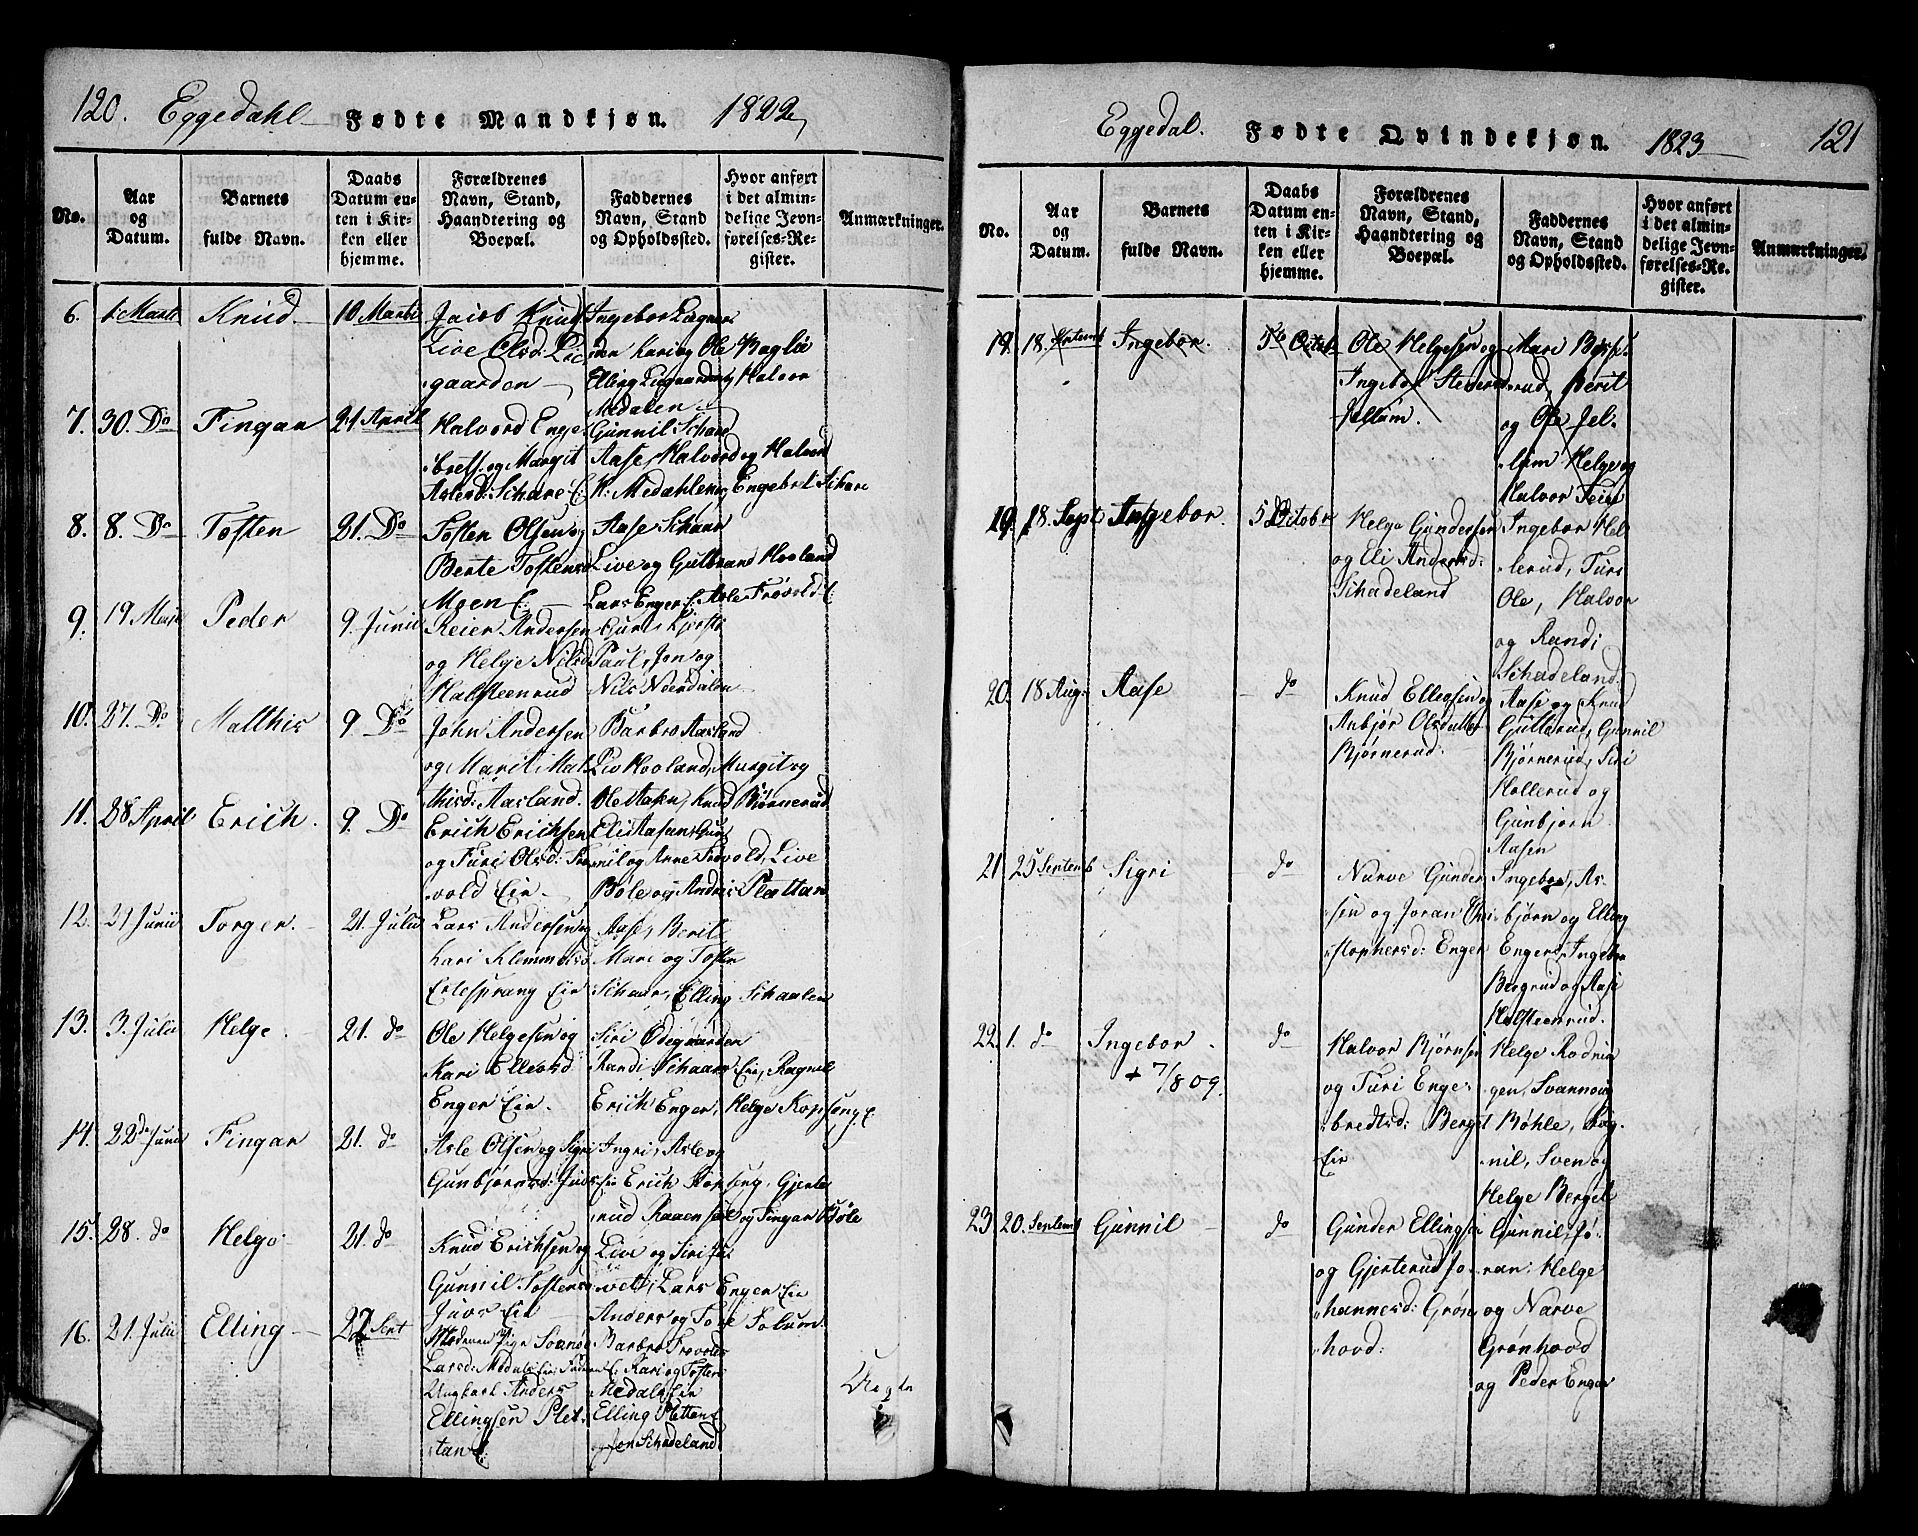 120. Eggedahl Fødte Mandkjøn. 1822
No.
Aar og Datum.
Barnets fulde Navn.
Daabs Datum enten i Kirken eller hjemme.
Forældrenes Navn, Stand, Haandtering og Boepæl.
Faddernes Navn, Stand og Opholdssted.
Hvor anført i det almindelige Jevnførelses-Register.
Anmærkninger.
6. 1. Marti Knud 10 Marti
Jacob Knuds
Live Olsd:
gaarden
Ingebor
Kari og Ole Baglie
Elling og Halvor
Medalen
7. 30. Do Fingar 21 April
Halvord Enge-
bretss. og Margit
Aslesd: Schare E:
Gunnil Schare
Aase, Halvord og Halvord
K: Medahlen og Engebrt Schare
8. 8. Do Tosten 21. Do
Tosten Olsen og
Berte Tostensd
Moen E:
Aase Schaar
Live og Gulbrand Hooland
Lars Enger E: Asle Frøvold E:
9. 19 Peder 9. Junii
Reier Andersen
og Helge Nilsd
Halsteenrud
Guri, Kjersti
Paul, Jon og
Nils Neerdalen
10. 27. Do Matthis 9 Do
John Andersen
og Marit Mat-
thisd: Aasland.
Barbro Aasland
Liv Hooland, Margit og
Ole Aasen, Knud Bjørnerud
11. 28 April Erich. 9. Do
Erich Erichsen
og Turi Olsd: Frø-
vold Eir.
Eli Aasen, Gun-
nil og Anne Frøvold, Live
Bøle og Andris Plattan
12. 21 Junii Torger. 21. Julii
Lars Andersen og
Kari Klemmetsd
Ertesprang Eir
Aase, Berit
Mari og Tosten
Schaar, Elling Schaalen
13. 3. Julii Helge. 21. do
Ole Helgesen og
Kari Ellevsd
Enger Eir.
Siri Ødegaarden
Randi Schaar Eie, Ragnil
Erich Enger, Helge Kopseng E.
14. 22de Junii Fingar 21. do
Asle Olsen og Sigri
Gunbjørnsd: Juvs Eir
Ingri, Asle og
Erich Kopseng, Gjerte
Raaen og Fingar Bøle
15. 28. do Helge 21. do
Knud Erichsen og
Gunnil Tostensd
Juvs Eir
Live og Siri Ju-
vet, Lars Enger Eir
Anders og Tore Solum
16. 21. Julii Elling 22 Sept
Moderen Pige
Larsd: Medals Eir: Faderen
Ungkarl Anders
Ellingsen Plat-
tan E:
Barbro Frøvolds
E. Kari og Tosten
Medals Eir
Elling Platten E
og Jon Schadeland
Uægte
Eggedal. Fødte Qvindekjøn. 1823 121
No.
Aar og Datum.
Barnets fulde Navn.
Daabs Datum enten i Kirken eller hjemme.
Forældrenes Navn, Stand, Haandtering og Boepæl.
Faddernes Navn, Stand og Opholdssted.
Hvor anført i det almindelige Jevnførelses-Register.
Anmærkninger.
19. 18. Septemb Ingebor. 5te Octob
Ole Helgesen og
Ingebor
Jellum.
Mari
rud, Berit
og Ole Jel-
lum Helge og
Halvor Teien
19. 18. Sept Ingebor. 5 Octobr
Helge Gundersen
og Eli Andersd:
Schadeland
Ingebor Hol-
lerud, Turi
Ole, Halvor
og Randi
Schadeland.
20. 18 Aug. Aase do
Knud Ellevsen og
Anbjør Olsdatter
Bjørnerud.
Aase og Knud
Gulterud, Gunnil
Bjørnerud, Siri
Hollerud og
Gunbjørn
Aasen
21 25 Septemb Sigri do
Narve Gunder-
sen og Joran Chri-
stophersd: Enger
Ingebor, As-
bjørn og Elling
Enger, Ingebor
Bergrud og Aase
Halsteenrud.
22. 1. do Ingebor. do
+ 7/8 09.
Halvor Bjørnsen
og Turi Enge-
bredtsd: Bergst
Eir
Helge Rodnin-
gen, Svannoug
Bøhle, Rag-
nil, Sven og
Helge Berget
23 20. Septemb Gunnil do
Gunder Ellingsen
og Gjerterud Jo-
hannesd: Grøn-
hovd:
Gunnil, Jø-
ran, Helge
og Narve
Grønhovd
og Peder Enger